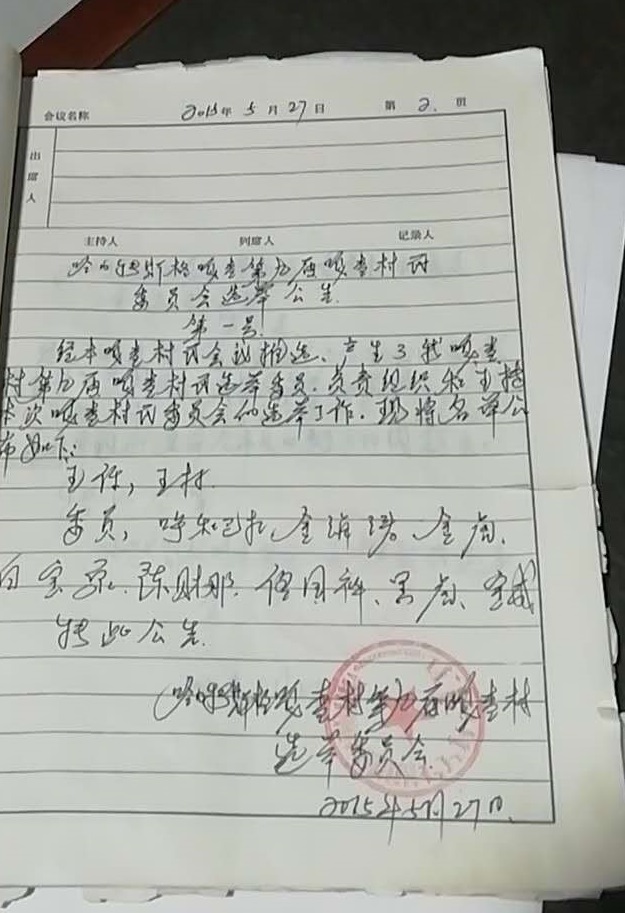 会议名称 2015年 5月 27日 第 2 页
出席人
主持人 列席人 记录人
哈 斯格嘎查第九届嘎查村民
委员会选举公告
第一号
经本嘎查村民会议推选、产生了我嘎查
村第九届嘎查村民选举委员.负责组织和主持
本次嘎查村民委员会的选举工作.现将名单公
布如下:
主任, 王村.
委员, 呼和巴拉、金海 、金 、
白 、陈财那、 国祥、 、
特此公告.
哈 斯格嘎查村第九届嘎查村
选举委员会
2015年5月27日.